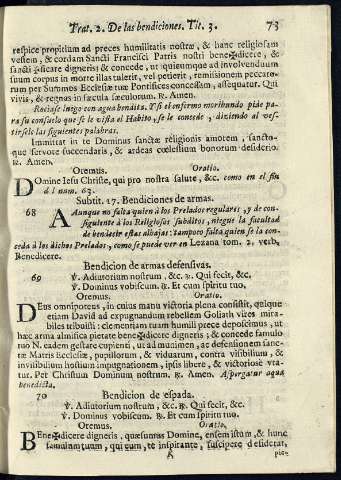 Trat. 2. De las bendiciones. Tit. 3. 73
respice propitium ad preces humilitatis nostræ, & hanc religiosam
vestem, & cordam Sancti Francisci Patris nostri bene✠dicere, &
sancti✠ficare digneris & concede, ut quicumque ad involvendum
suum corpus in morte illas tulerit, vel petierit, remissionem peccato-
rum per Summos Ecclesiæ tuæ Pontifices concessam, assequatur. Qui
vivis, & regnas in sæcula sæculorum. ℟. Amen.
Rociase luego con agua bendita. Y si el enfermo moribundo pide pa-
ra su consuelo que se le vista el Habito, se le concede, diciendo al ves-
tirsele las siguientes palabras.
Immittat in te Dominus sanctæ religionis amorem, sancto-
que fervore succendaris, & ardeas cœlestium bonorum desiderio.
℟. Amen.
Oremus. Oratio.
Domine Jesu Christe, qui pro nostra salute, &c. como en el fin
del num. 63.
Subtit. 17. Bendiciones de armas.
68 Aunque no falta quien à los Prelados regulares, y de con-
siguiente à los Religiosos subditos, niegue la facultad
de bendecir estas alhajas: tampoco falta quien se la con-
ceda à los dichos Prelados, como se puede ver en Lezana tom. 2. verb.
Benedicere.
Bendicion de armas defensivas.
69 ℣. Adiutorium nostrum, &c. ℟. Qui fecit, &c.
℣. Dominus vobiscum. ℟. Et cum spiritu tuo.
Oremus. Oratio.
Deus omnipotens, in cuius manu victoria plena consistit, quique
etiam David ad expugnandum rebellem Goliath vires mira-
biles tribuisti: clementiam tuam humili prece deposcimus, ut
hæc arma almifica pietate bene✠dicere digneris; & concede famulo
tuo N. eadem gestare cupienti, ut ad munimen, ac defensionem sanc-
tæ Matris Ecclesiæ, pupillorum, & viduarum, contra visibilium, &
invisibilium hostium impugnationem, ipsis libere, & victoriose vta-
tur. Per Christum Dominum nostrum. ℟. Amen. Aspergatur aqua
benedicta.
70 Bendicion de espada.
℣. Adiutorium nostrum, &c. ℟. Qui fecit, &c.
℣. Dominus vobiscum. ℟. Et cum spiritu tuo.
Oremus. Oratio.
Bene✠dicere digneris, quæsumus Domine, ensem istum, & hunc
famulum tuum, qui eum, te inspirante, suscipere desiderat,
K